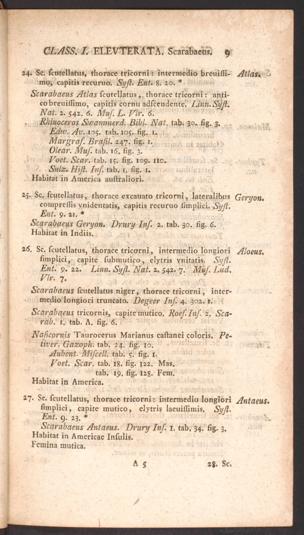 CLASS. I. ELEVTERATA. Scarabaeus. 9
24. Sc. scutellatus, thorace tricorni: intermedio breuissi- Atlas.
mo, capitis recuruo. Syst. Ent. 8. 20. *
Scarabaeus Atlas scutellatus, thorace tricorni: anti-
co breuissimo, capitis cornu adscendente. Linn. Syst.
Nat. 2. 542. 6. Mus. L. Vlr. 6.
Rhinoceros Swammerd. Bibl. Nat. tab. 30. fig. 3.
Edw. Av. 105. tab. 105. fig. 1.
Margraf. Brasil. 247. fig. 1.
Olear. Mus. tab. 16. fig. 3.
Voet. Scar. tab. 15. fig. 109. 110.
Sulz. Hist. Ins. tab. 1. fig. 1.
Habitat in America australiori.
25. Sc. scutellatus, thorace excauato tricorni, lateralibus Geryon.
compressis vnidentatis, capitis recuruo simplici. Syst.
Ent. 9. 21. *
Scarabaeus Geryon. Drury Ins. 2. tab. 30. fig. 6.
Habitat in Indiis.
26. Sc. scutellatus, thorace tricorni, intermedio longiori Aloeus.
simplici, capite submutico, elytris vnitatis. Syst.
Ent. 9. 22. Linn. Syst. Nat. 2. 542. 7. Mus. Lud.
Vlr. 7.
Scarabaeus scutellatus niger, thorace tricorni, inter-
medio longiori truncato. Degeer Ins. 4. 302. 1.
Scarabaeus tricornis, capite mutico. Roes. Ins. 2. Sca-
rab. 1. tab. A. fig. 6.
Nasicornis Taurocerus Marianus castanei coloris. Pe-
tiver. Gazoph. tab. 24. fig. 10.
Aubent. Miscell. tab. 5. fig. 1.
Voet. Scar. tab. 18. fig. 122. Mas.
tab. 19. fig. 128. Fem.
Habitat in America.
27. Sc. scutellatus, thorace tricorni: intermedio longiori Antaeus.
simplici, capite mutico, elytris laeuissimis. Syst.
Ent. 9. 23. *
Scarabaeus Antaeus. Drury Ins. 1. tab. 34. fig. 3.
Habitat in Americae Insulis.
Femina mutica.
A 5 28. Sc.